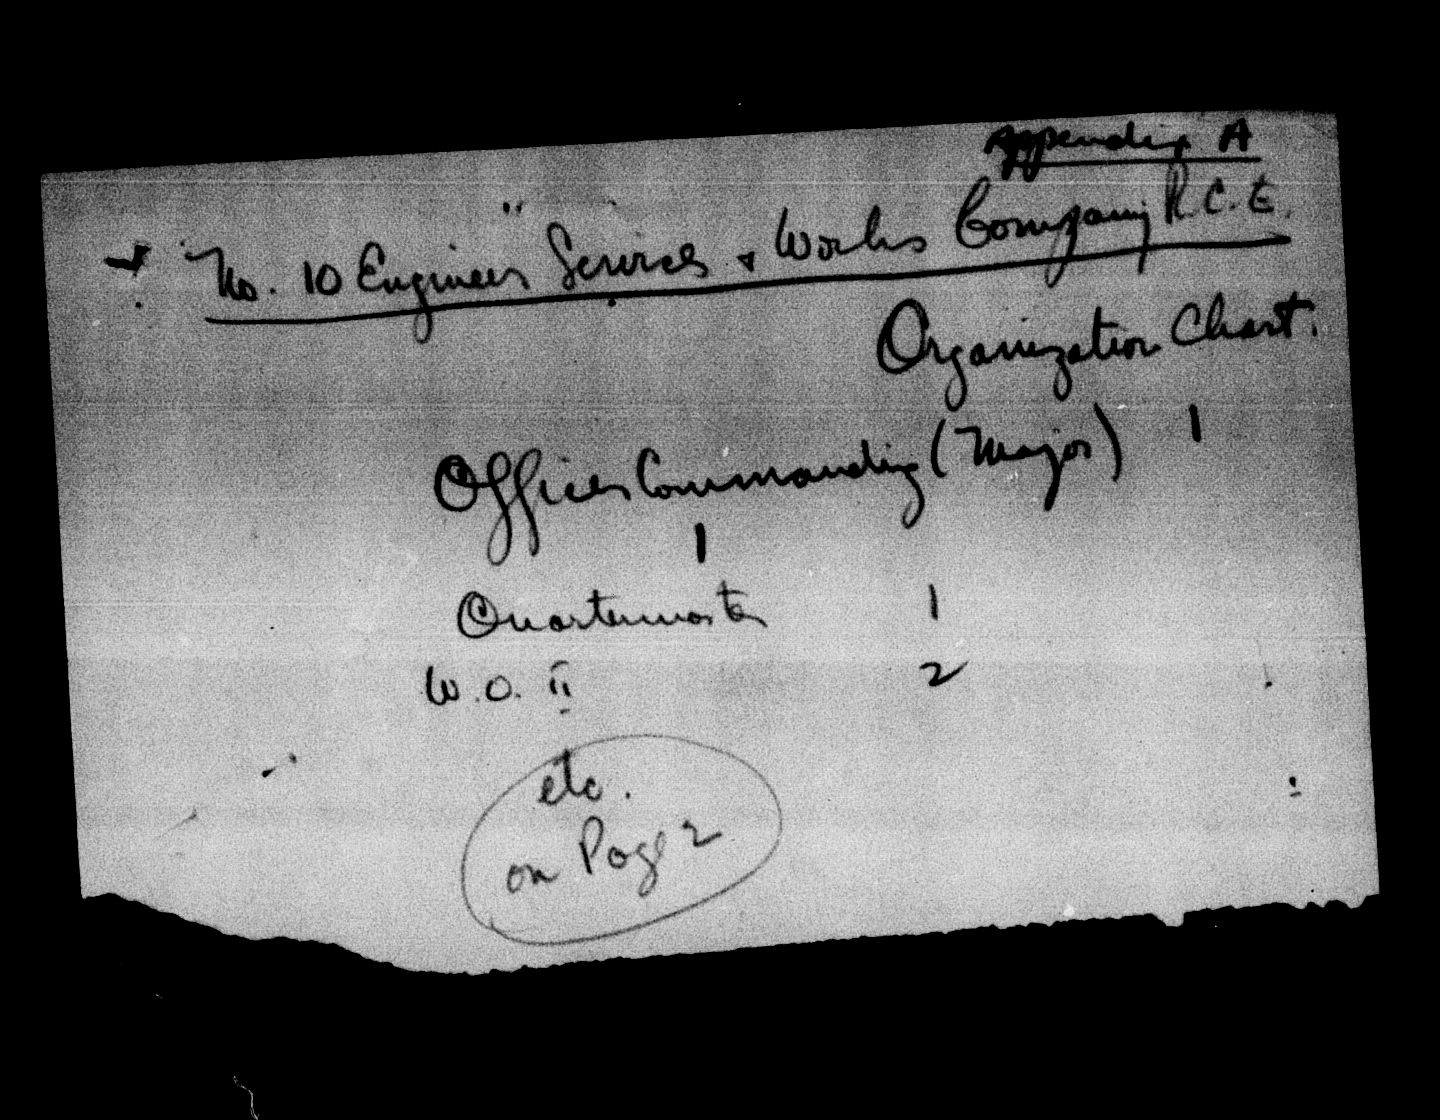 Appendix A
No. 10 Engineer Services & Works Company R.C.E.
Organization Chart.
Officer Commanding (Major) 1
Quartermaster 1
W.O. II 2
etc.
on Page 2